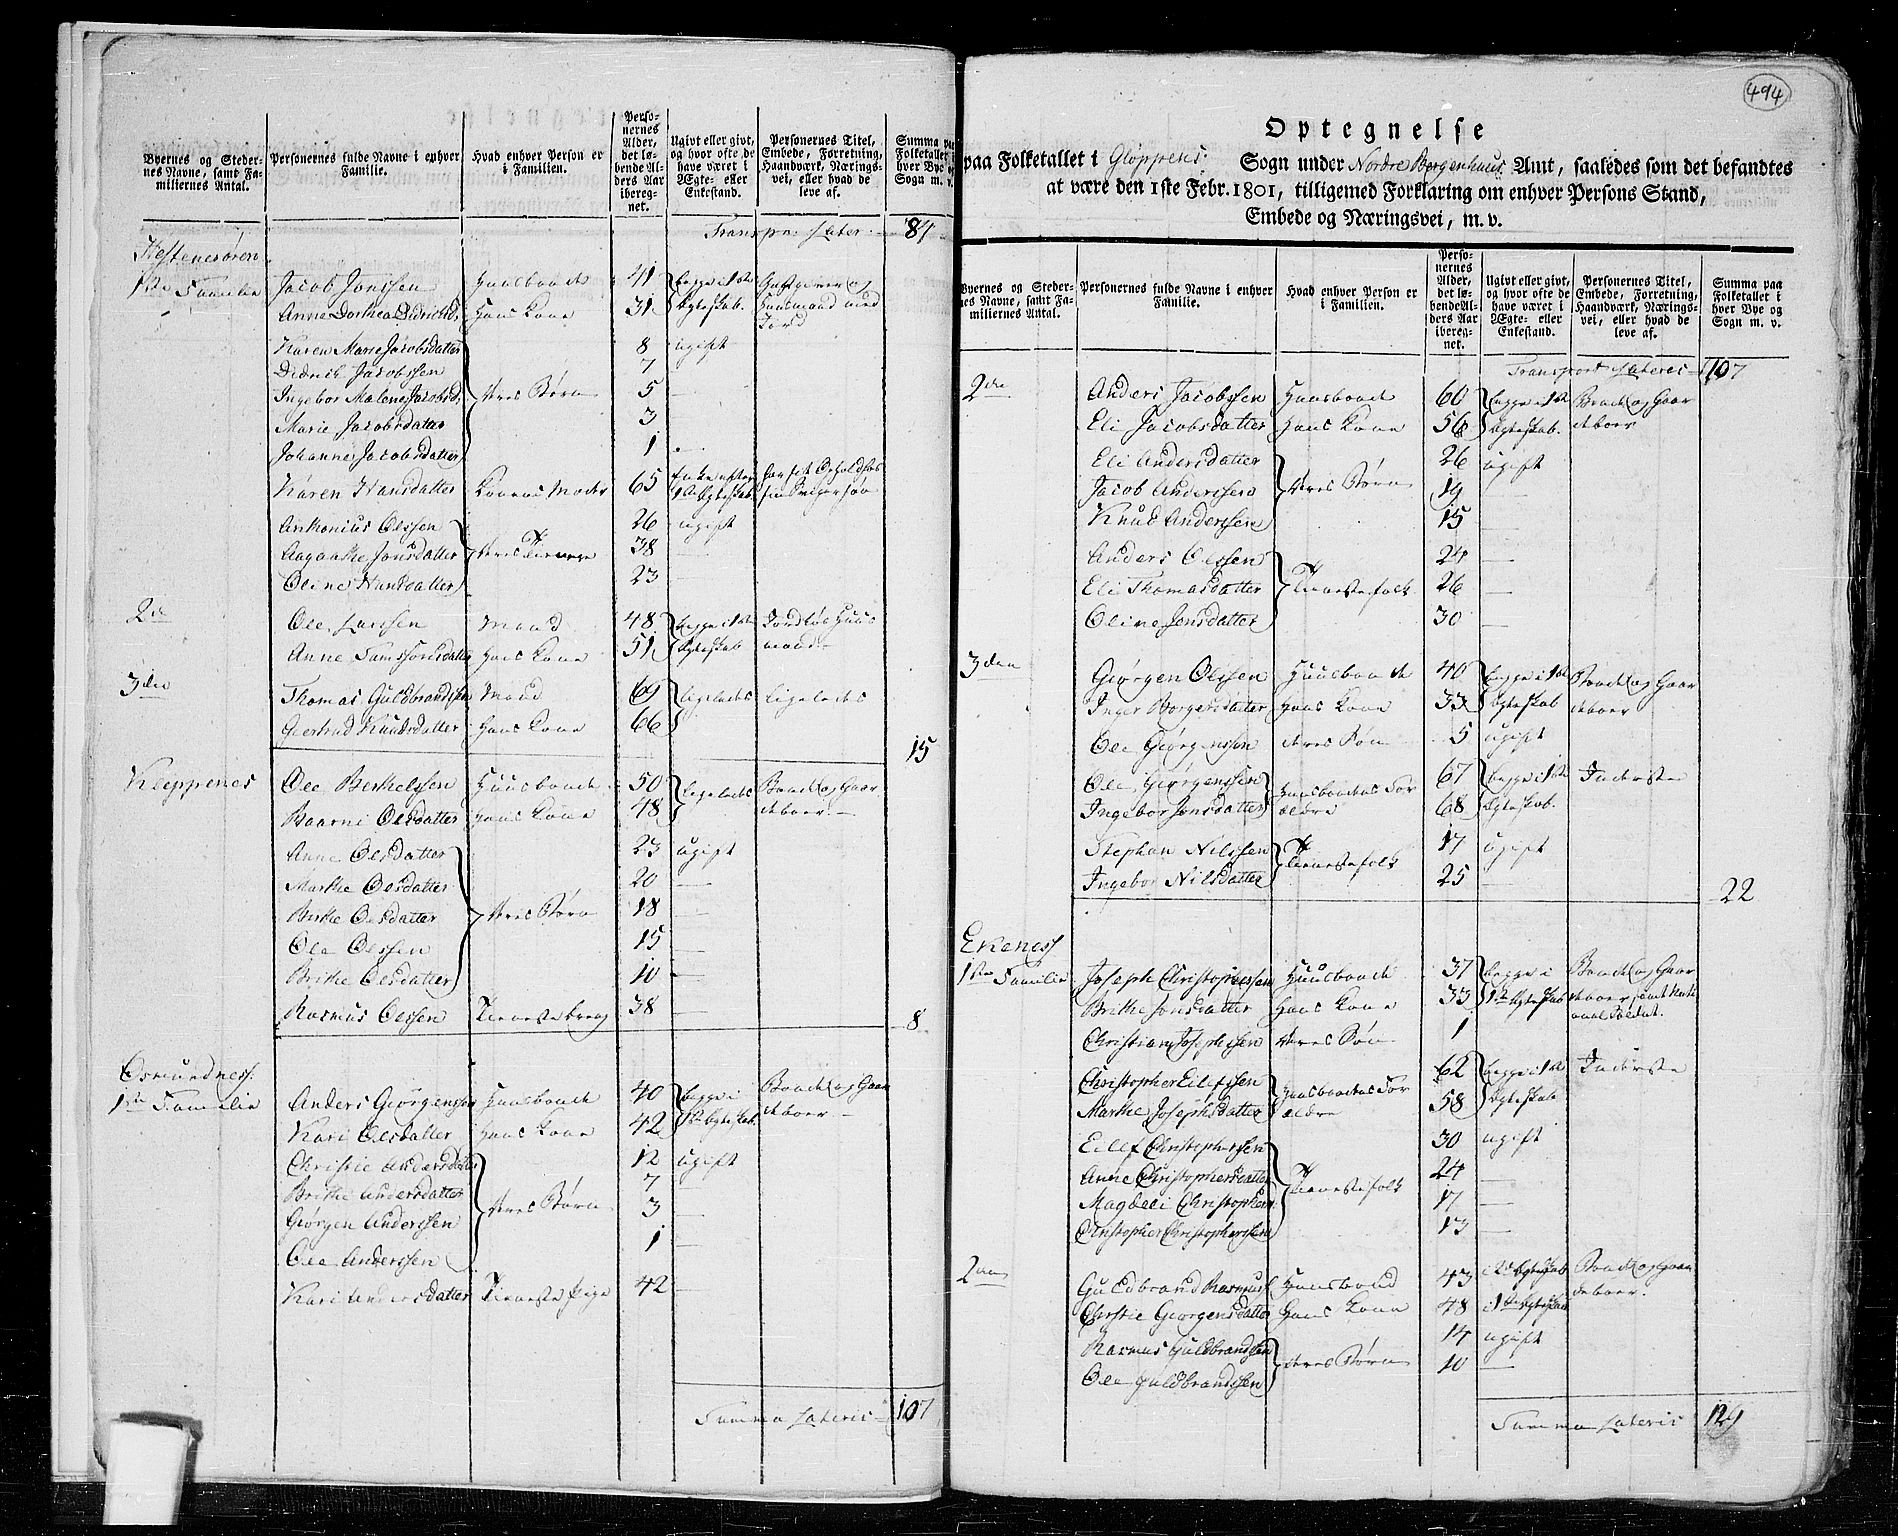 Byernes og Steder-
nes Navne, samt Fa-
miliernes Antal.
Personernes fulde Navne i enhver
Familie.
Hvad enhver Person er
i Familien.
Perso-
nernes
Alder,
det lø-
bende Al-
ders Aar
ibereg-
net.
Ugivt eller givt,
og hvor ofte de
have været i
Ægte- eller
Enkestand.
Personernes Titel,
Embede, Forretning,
Haandværk, Nærings-
vei, eller hvad de
leve af.
Summa paa
Folketallet i
hver Bye og
Sogn m. v.
Transp. Later. 81
Hestenesøren
1ste Familie Jacob Jonssen Huusbonde 41 begge i 1ste Giestgiver og
Anne Dorthea Didrichsd. Hans Kone 31 Ægteskab. Huusmand med Jord
Karen Marie Jacobsdatter 8 ugift
Didrik Jacobssen 7
Ingebor Malene Jacobsd. deres Børn 5 —
Marie Jacobsdatter 3
Johanne Jacobsdatter 1
Karen Hansdatter Konens Moder 65 Enke efter 1ste Ægteskab
Antonius Olssen 26 ugift
Aagaathe Jonsdatter deres Tienere 38 —
Oline Hansdatter 23 —
2de Ole Larssen Mand 48 begge i 1ste Jordløs Huus
Anne Samsonsdatter Hans Kone 51 Ægteskab mand
3die Thomas Guldbrandsen Mand 69 ligeledes ligeledes
Giertrud Knudsdatter Hans Kone 66
15
Kleppenes Ole Berthelssen Huusbonde 50 ligeledes Bonde og Gaar
Baarni Olsdatter Hans Kone 48 deboer —
Anne Olsdatter 23 ugift
Marthe Olsdatter 20 —
Birthe Olsdatter deres Børn 18 —
Ole Olssen 15 —
Brithe Olsdatter 10 —
Rasmus Olssen Tienestedreng 38 —
8
Osmundness.
1ste Familie Anders Giørgenssen Huusbonde 40 begge i Bonde og Gaar
Kari Olsdatter Hans Kone 42 1ste Ægteskab. deboer —
Christie Andersdatter 12 ugift
Brithe Andersdatter 7
Giørgen Anderssen deres Børn 3 —
Ole Anderssen 1 —
Kari Andersdatter Tieneste Pige 42 —
Summa Lateris 107
494
Optegnelse
paa Folketallet i Gloppens Sogn under Nordre Bergenhuus Amt, saaledes som det befandtes
at være den 1ste Febr. 1801, tilligemed Forklaring om enhver Persons Stand,
Embede og Næringsvei, m. v.
Byernes og Steder-
nes Navne, samt Fa-
miliernes Antal.
Personernes fulde Navne i enhver
Familie.
Hvad enhver Person er
i Familien.
Perso-
nernes
Alder,
det lø-
bende Al-
ders Aar
ibereg-
net.
Ugivt eller givt,
og hvor ofte de
have været i
Ægte- eller
Enkestand.
Personernes Titel,
Embede, Forretning,
Haandværk, Nærings-
vei, eller hvad de
leve af.
Summa paa
Folketallet i
hver Bye og
Sogn m. v.
Transport Lateris 107
2den Anders Jacobssen Huusbonde 60 begge i 1ste Bonde og Gaar
Eli Jacobsdatter Hans Kone 56 Ægteskab. deboer
Eli Andersdatter 26 ugift
Jacob Anderssen deres Børn 19 —
Knud Anderssen 15 —
Anders Olssen 24 —
Eli Thomasdatter Tienestefolk 26 —
Oline Jonsdatter 30 —
3den Giørgen Olssen Huusbonde 40 begge i 1ste Bonde og Gaar
Inger Borgersdatter Hans Kone 33 Ægteskab deboer
Ole Giørgenssen deres Søn 5 ugift
Ole Giørgenssen Huusbondens For 67 begge i 1ste Inderste
Ingebor Jonsdatter ældre 68 Ægteskab.
Stephan Nilssen 17 ugift
Ingebor Nilsdatter Tienestefolk 25 —
22
Ekeness
1ste Familie Joseph Christophersen Huusbonde 37 begge i Bonde og Gaar
Brithe Jonsdatter Hans Kone 33 1ste Ægteskab deboer samt Nati
Christian Josephssen deres Søn 1 onal Soldat.
Christopher Eilefssen Huusbondens For 62 begge i 1ste Inderste
Marthe Josephsdatter ældre 58 Ægteskab
Eilef Christophersen 30 ugift
Anne Christophersdatter 24 —
Magdeli Christophers Tienestefolk 17 —
Christopher Christophersen 13 —
2den Guldbrand Rasmuss. Huusbond 43 i 2det Ægteskab Bonde og Gaar
Christie Giørgensdatter Hans Kone 48 i 1ste Ægteskab deboer.
Rasmus Guldbrandsen 14 ugift
Ole Guldbrandssen deres Børn 10 —
Summa Lateris 129